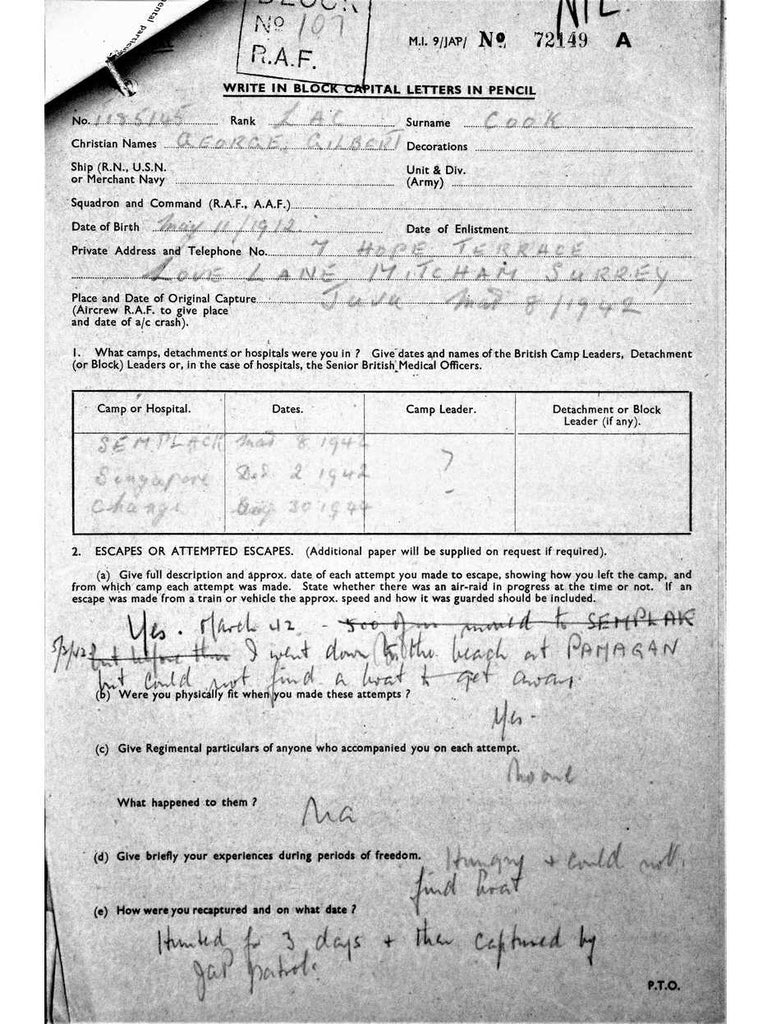 BLOCK
No 107
R.A.F.
NIL
M.I. 9/JAP/ No 72149 A
WRITE IN BLOCK CAPITAL LETTERS IN PENCIL
No. 1185145 Rank LAC Surname COOK
Christian Names GEORGE. GILBERT Decorations
Ship (R.N., U.S.N. or Merchant Navy
Unit & Div. (Army)
Squadron and Command (R.A.F., A.A.F.)
Date of Birth May 11/1912. Date of Enlistment
Private Address and Telephone No. 7 HOPE TERRACE
LOVE LANE MITCHAM SURREY
Place and Date of Original Capture Java Mar 8/1942
(Aircrew R.A.F. to give place
and date of a/c crash).
1. What camps, detachments or hospitals were you in ? Give dates and names of the British Camp Leaders, Detachment
(or Block) Leaders or, in the case of hospitals, the Senior British Medical Officers.
Camp or Hospital. Dates. Camp Leader. Detachment or Block Leader (if any).
SEMPLACK Mar 8 1942
Singapore 2 1942 ?
Changi Aug 30 1944 -
2. ESCAPES OR ATTEMPTED ESCAPES. (Additional paper will be supplied on request if required).
(a) Give full description and approx. date of each attempt you made to escape, showing how you left the camp, and
from which camp each attempt was made. State whether there was an air-raid in progress at the time or not. If an
escape was made from a train or vehicle the approx. speed and how it was guarded should be included.
Yes. March 42. - 500 of us moved to SEMPLAK
5/3/42 but before this I went down to the beach at PAMAGAN
but could not find a boat to get away.
(b) Were you physically fit when you made these attempts ?
Yes -
(c) Give Regimental particulars of anyone who accompanied you on each attempt.
No one
What happened to them ? Na
(d) Give briefly your experiences during periods of freedom. Hungry + could not
find boat
(e) How were you recaptured and on what date ?
Hunted for 3 days + then captured by
Jap patrol.
P.T.O.